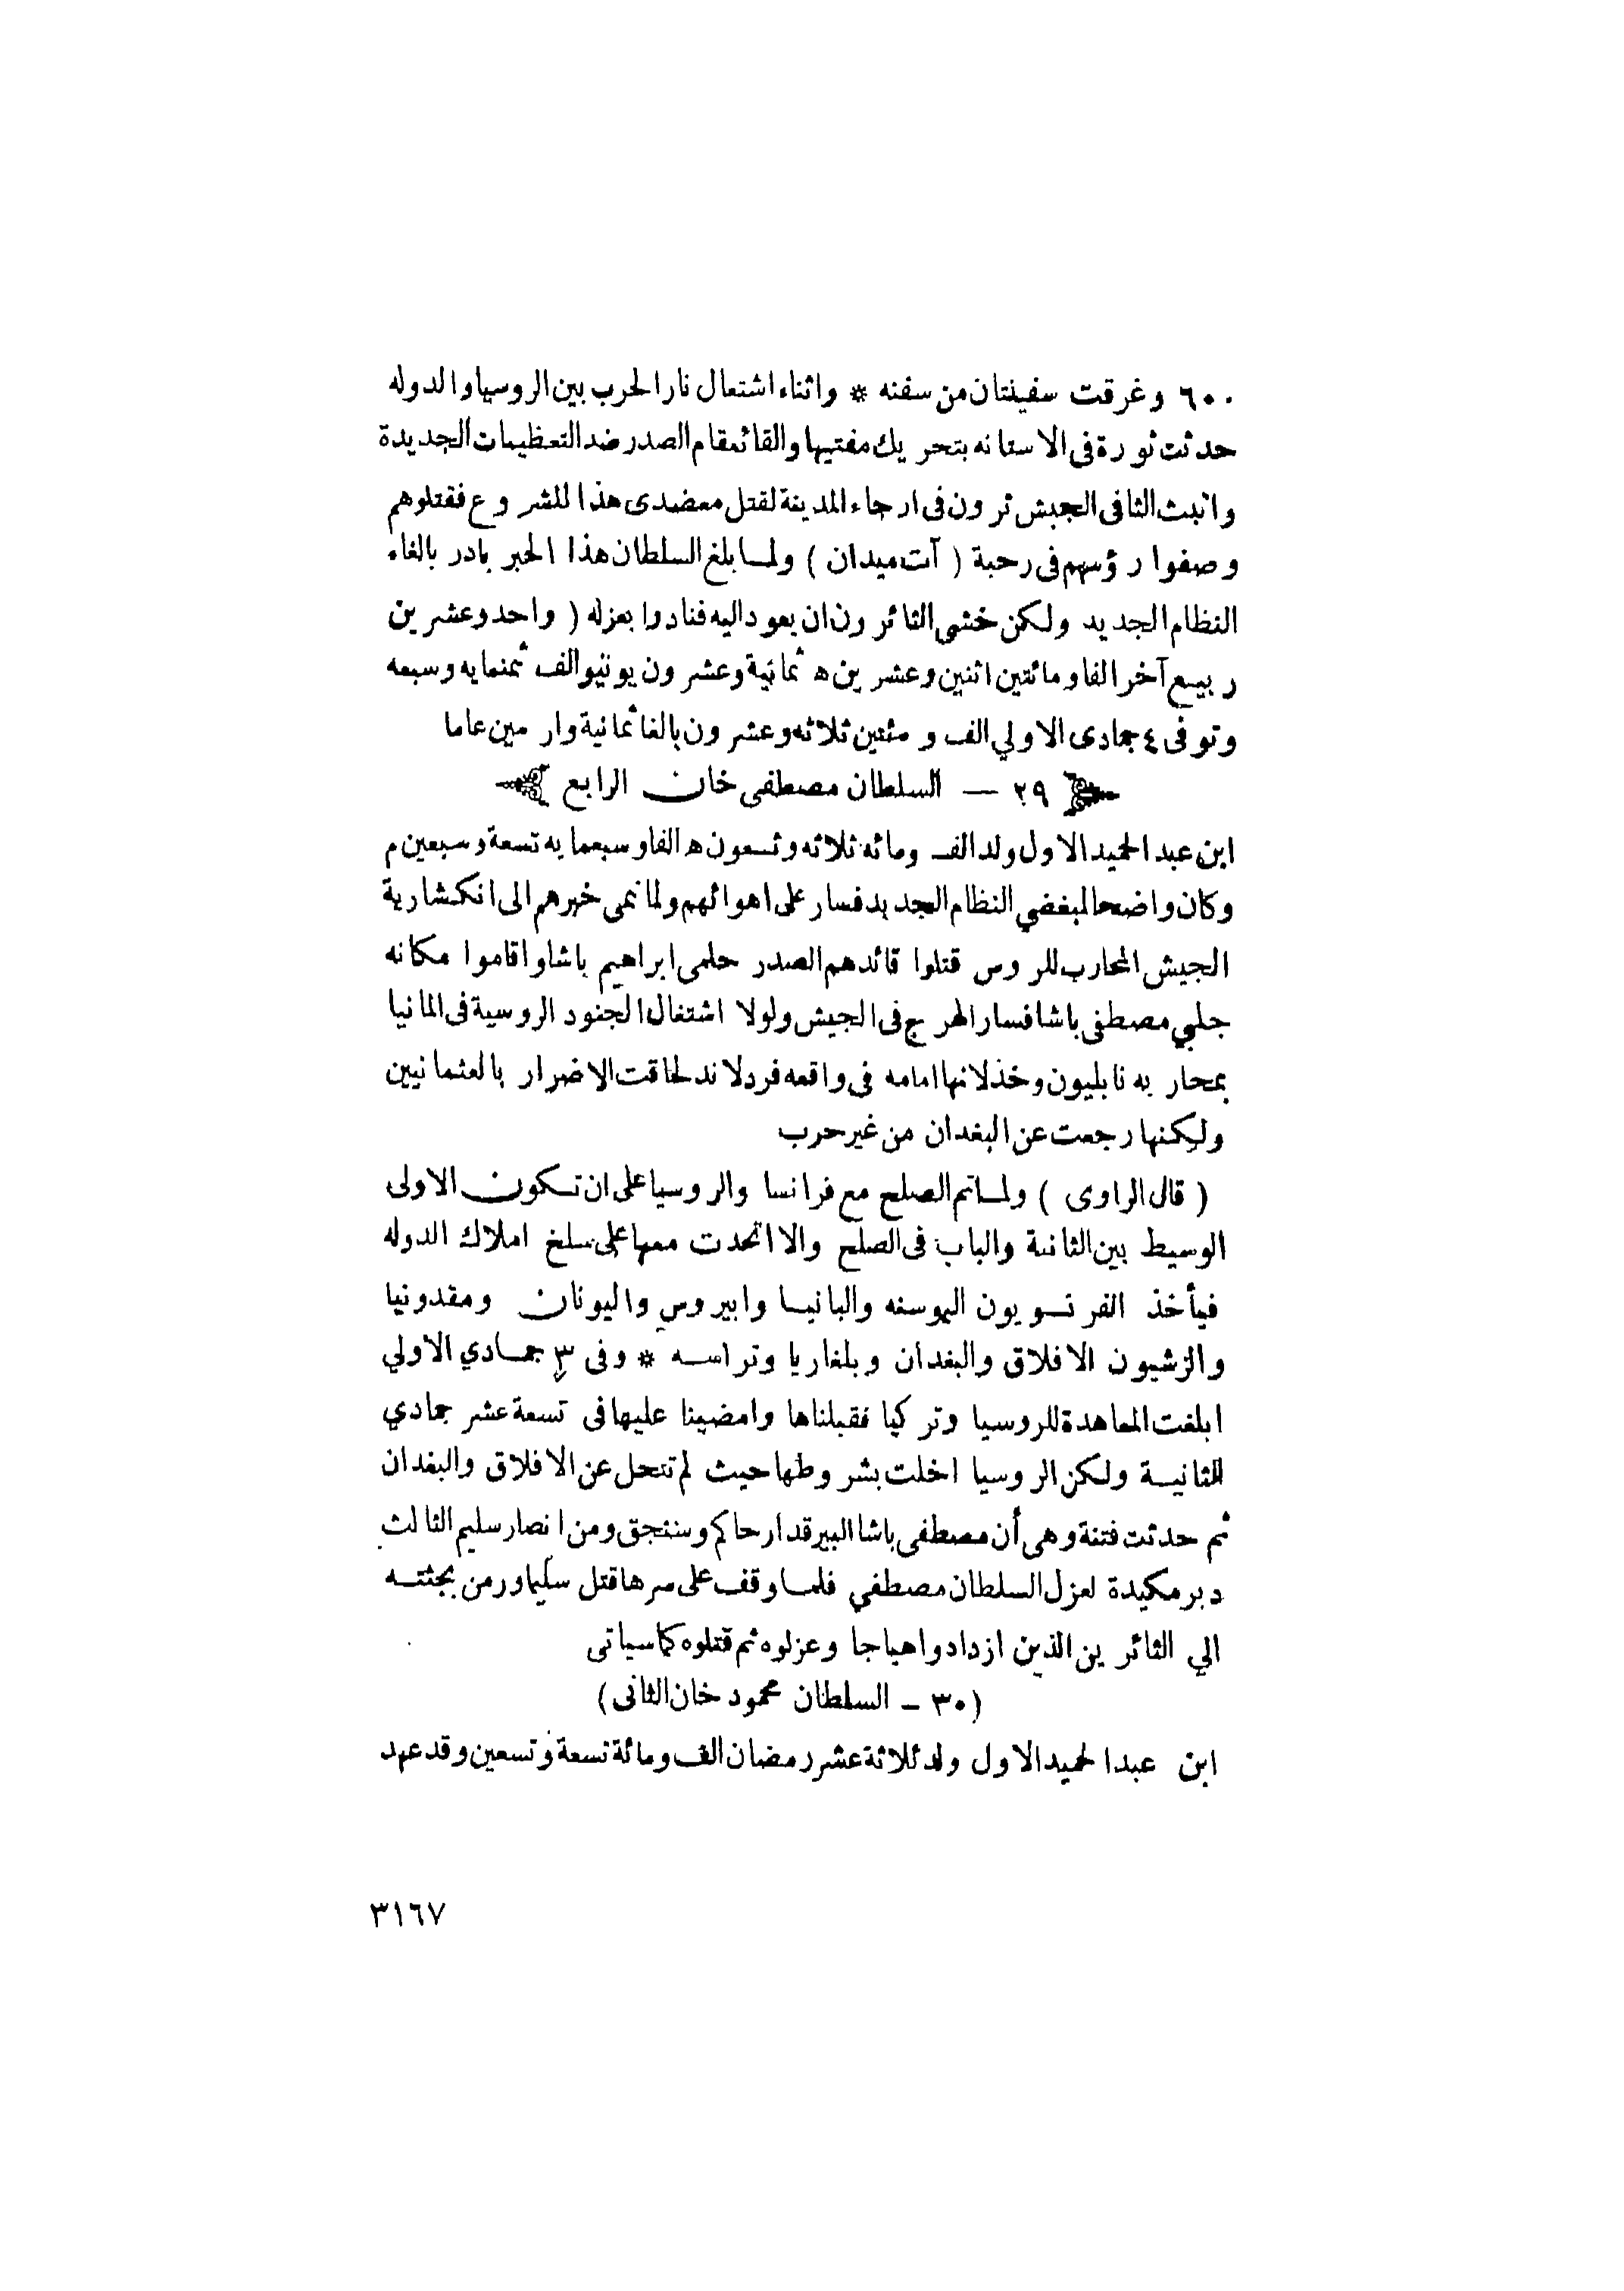 ٦٠٠ وغرقت سفينتان من سفنه * واثناء اشتعال نار الحرب بين الروسيا والدوله
حدثت ثورة فى الاستانه بتحريك مفتيها والقائمقام الصدر ضد التعظيمات الجديدة
وانبث الثافى الجيش ثرون فى ارجاء المدينة لقتل معضدى هذا المشروع فقتلوهم
وصفوا رؤسهم فى رحبة ( آت ميدان ) ولما بلغ السلطان هذا الخبر بادر بالغاء
النظام الجديد ولكن خشي الثائرون ان يعود اليه فنادوا بعزله ( واحد وعشرين
ربيع آخر الفا ومائتين اثنين وعشرين ه ثمانية وعشرون يونيو الف ثمنمايه وسبعه
وتوفى ٤ جمادى الاولي الف ومئتين ثلاثه وعشرون بالغا ثمانية وار مين عاما
٢٩ — السلطان مصطفى خان الرابع
ابن عبد الحميد الاول ولد الف ومائه ثلاثه وتسعون ه الفا وسبعمايه تسعة وسبعين م
وكان واضحا لمبغضي النظام الجديد فسار على اهوائهم ولما نمى خبرهم الى انكشارية
الجيش المحارب للروس قتلوا قائدهم الصدر حلمى ابراهيم باشا واقاموا مكانه
جلبي مصطفى باشا فسار الهرج فى الجيش ولولا اشتغال الجنود الروسية فى المانيا
بمحاربه نابليون وخذلانها امامه فى واقعه فردلاند لحاقت الاضرار بالعثمانيين
ولكنها رجعت عن البغدان من غير حرب
( قال الراوى ) ولما تم الصلح مع فرانسا والروسيا على ان تكون الاولى
الوسيط بين الثانية والباب فى الصلح والا اتحدت معها على سلخ املاك الدوله
فيأخذ الفرنسويون البوسنه والبانيا وابيروس واليونان ومقدونيا
والرشيون الافلاق والبغدان وبلغاريا وتراسه * وفى ٣ جمادي الاولي
ابلغت المعاهدة للروسيا وتركيا فقبلناها وامضينا عليها فى تسعة عشر جمادي
الثانية ولكن الروسيا اخلت بشروطها حيث لم تتحل عن الافلاق والبغدان
ثم حدثت فتنة وهى أن مصطفى باشا البيرقدار حاكم وسنتجق ومن انصار سليم الثالث
دبر مكيدة لعزل السلطان مصطفي فلما وقف على سرها قتل سليما ورمن بجثته
الي الثائرين الذين ازدادوا هياجا وعزلوه ثم قتلوه كما سياتى
(٣٠ – السلطان محمود خان الثانى)
ابن عبد الحميد الاول ولد ثلاثة عشر رمضان الف ومائة تسعة وتسعين وقد عهد
٣١٦٧